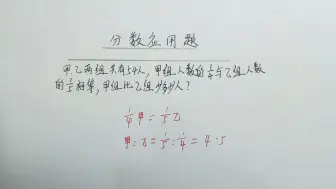 分数应用题
甲、乙两组共有54人，甲组人数的1/4与乙组人数
的1/5相等，甲组比乙组少多少人？
1/4甲=1/5乙
甲:乙=1/5:1/4=4:5